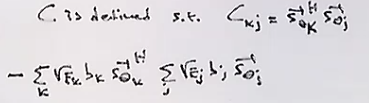 C is defined s.t. C_{kj} = \vec{s}_{\theta_k}^H \vec{s}_{\theta_j}
- \sum_k \sqrt{E_k} b_k \vec{s}_{\theta_k}^H \sum_j \sqrt{E_j} b_j \vec{s}_{\theta_j}